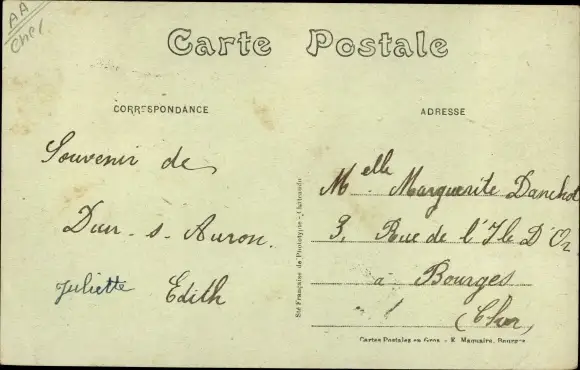 AA
Cher
Carte Postale
CORRESPONDANCE
ADRESSE
Souvenir de
Dun-s-Auron.
Juliette Edith
Melle Marguerite Danchot
3, Rue de l'Ile D'Or
à Bourges
(Cher)
Sté Française de Phototypie - Châteaudun
Cartes Postales en Gros - E. Maquaire, Bourges